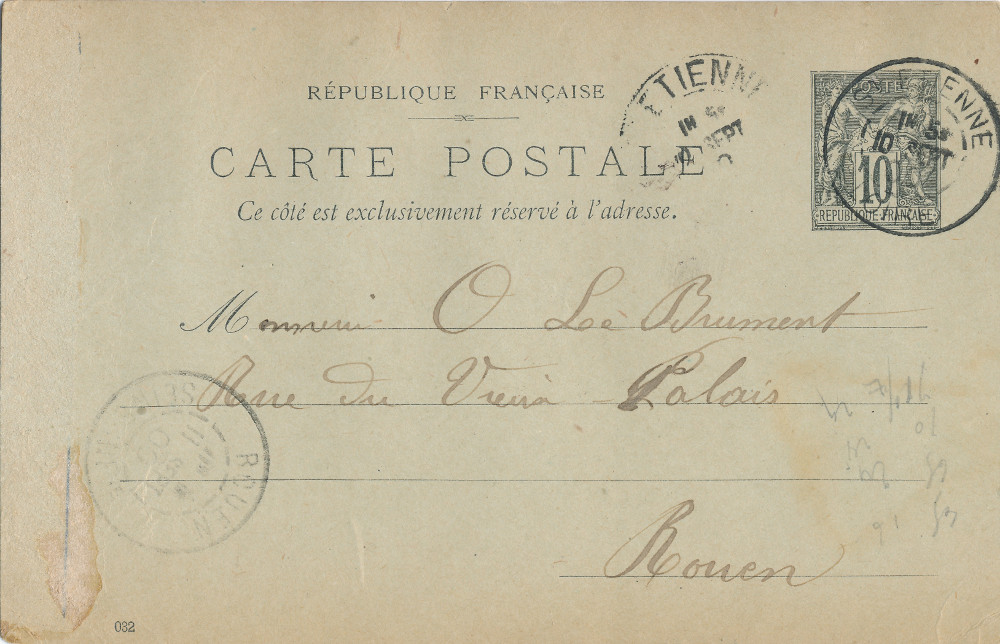 RÉPUBLIQUE FRANÇAISE
CARTE POSTALE
Ce côté est exclusivement réservé à l'adresse.
ETIENNE
10 SEPT
POSTE
10
REPUBLIQUE FRANÇAISE
ST ETIENNE
10 SEPT
Monsieur O Le Brument
Rue du Vieux Palais
Rouen
ROUEN
11
032